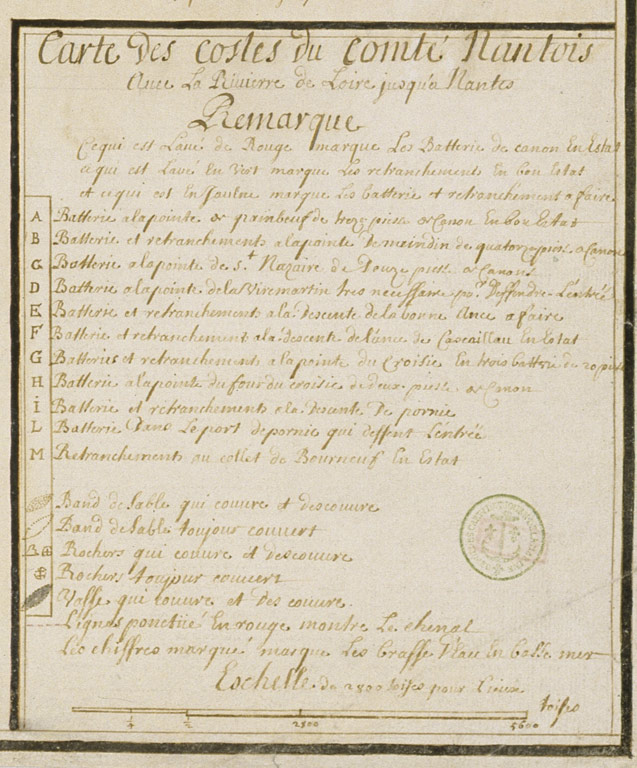 Carte Des costes du comté Nantois
Avec La Rivierre de Loire jusqu'a Nantes
Remarque
Cequi est Lavé de Rouge marque Les Batterie de canon En Estat
ce qui est Lavé En Vert marque Les retranchements En bon Estat
et ce qui est En Jaulne marque Les batterie et retranchement a faire
A Batterie alapointe de paimbeuf de treze piesse de Canon En bon Estat
B Batterie et retranchements alapointe de meindin de quatorze piesse de Canon
C Batterie alapointe de St. Nazaire de Douze piesse de Canons
D Batterie alapointe dela Viremartin tres neussaire pr. Deffondre L'entrée
E Batterie et retranchement ala descente de la bonne Ance a faire
F Batterie et retranchement ala descente de l'ance de Cascaillau En Estat
G Batteries et retranchement alapointe du Croisic En trois battrie de 20 piesse
H Batterie alapointe du four du croisic de deux piesse de Canon
I Batterie et retranchements ala descente De pornie
L Batterie Dans Leport depornie qui deffent L'entrée
M Retranchements au collet de Bourneuf En Estat
Band de Sable qui couvre et descouvre
Band de Sable toujour couvert
Rochers qui couvre et descouvre
Rochers toujour couvert
Vasse qui couvre et des couvre.
Lignes ponctué En rouge montre Le chenal
Les chiffres marqué marque Les brasse d'eau En basse mer
Eschelle de 2800 toises pour Lieue
toises
1/4 1/2 2800 5600